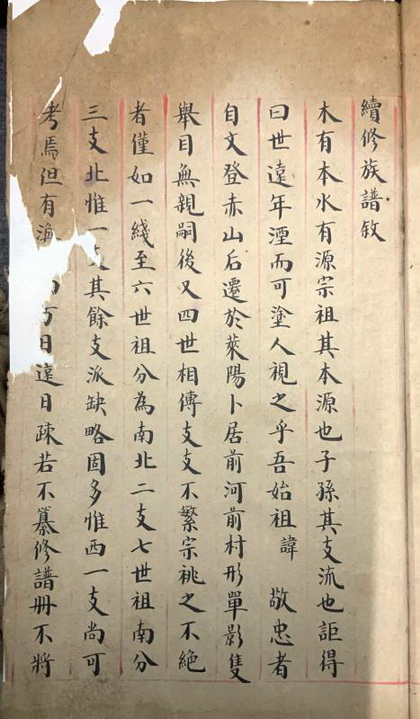 續修族譜敘
木有本水有源宗祖其本源也子孫其支流也詎得
曰世遠年湮而可塗人視之乎吾始祖諱 敬忠者
自文登赤山后遷於萊陽卜居前河前村形單影隻
舉目無親嗣後又四世相傳支支不繁宗祧之不絕
者僅如一綫至六世祖分為南北二支七世祖南分
三支北惟一支其餘支派缺略固多惟西一支尚可
考焉但有 日遠日疎若不纂修譜冊不將